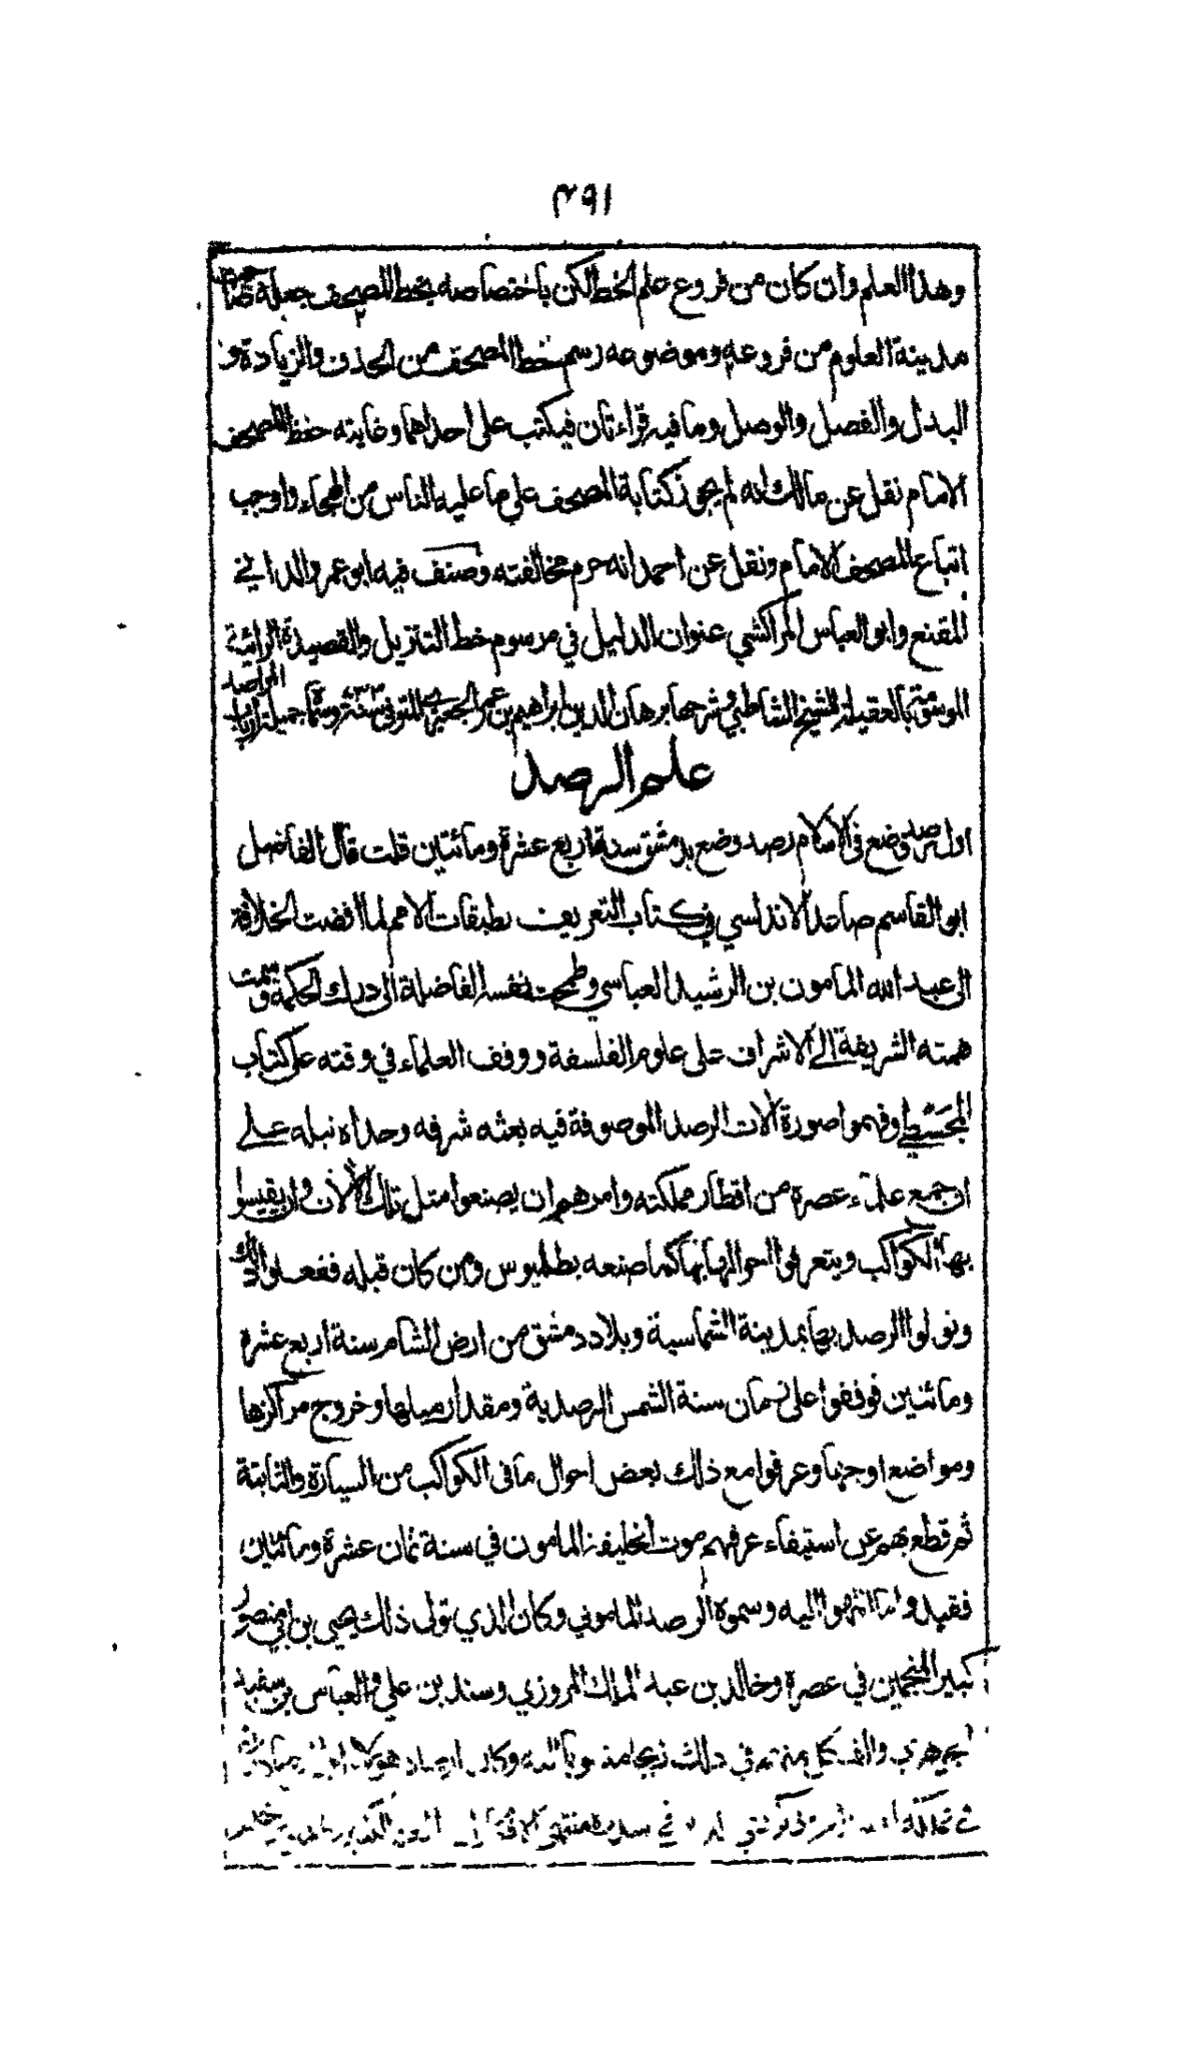 ٣٩١
وهذا العلم وان كان من فروع علم الخط لكن باختصاصه بخط المصحف جعله صاحب
مدينة العلوم من فروعه وموضوعه رسم خط المصحف من الحذف والزيادة و
البدل والفصل والوصل وما فيه قراءتان فيكتب على احداهما وغايته حفظ المصحف
الامام نقل عن مالك انه لم يجوز كتابة المصحف على ما عليه الناس من الهجاء واوجب
اتباع المصحف الامام ونقل عن احمد انه حرم مخالفته وصنف فيه ابو عمرو الداني
المقنع وابو العباس المراكشي عنوان الدليل في مرسوم خط التنزيل والقصيدة الرائية
الموسومة بالعقيلة للشيخ الشاطبي وشرحها برهان الدين ابراهيم بن عمر الجعبري المتوفى سنة ٧٣٢ وسماه جميلة ارباب المراصد
علم الرصد
اول رصد وضع في الاسلام رصد وضع بدمشق سنة اربع عشرة ومائتين قلت قال الفاضل
ابو القاسم صاعد الاندلسي في كتاب التعريف بطبقات الامم لما افضت الخلافة
الى عبد الله المامون بن الرشيد العباسي وطمحت نفسه الفاضلة الى درك الحكمة وسمت
همته الشريفة الى الاشراف على علوم الفلسفة ووقف العلماء في وقته على كتاب
المجسطي وفهموا صورة آلات الرصد الموصوفة فيه بعثه شرفه وحداه نبله على
ان جمع علماء عصره من اقطار مملكته وامرهم ان يصنعوا مثل تلك الآلات وان يقيسوا
بها الكواكب ويتعرفوا احوالها بها كما صنعه بطلميوس ومن كان قبله ففعلوا ذلك
وتولوا الرصد بها بمدينة الشماسية وبلاد دمشق من ارض الشام سنة اربع عشرة
ومائتين فوقفوا على زمان سنة الشمس الرصدية ومقدار ميلها وخروج مراكزها
ومواضع اوجها وعرفوا مع ذلك بعض احوال ما في الكواكب من السيارة والثابتة
ثم قطع بهم عن استيفاء غرضهم موت الخليفة المامون في سنة ثمان عشرة ومائتين
فقيدوا ما انتهوا اليه وسموه الرصد الماموني وكان الذي تولى ذلك يحيى بن ابي منصور
كبير المنجمين في عصره وخالد بن عبد الملك المروزي وسند بن علي والعباس بن سعيد
الجوهري والف كل منهم في ذلك زيجا منسوبا اليه وكان ارصاد هولاء اول ارصاد كانت
في مملكة